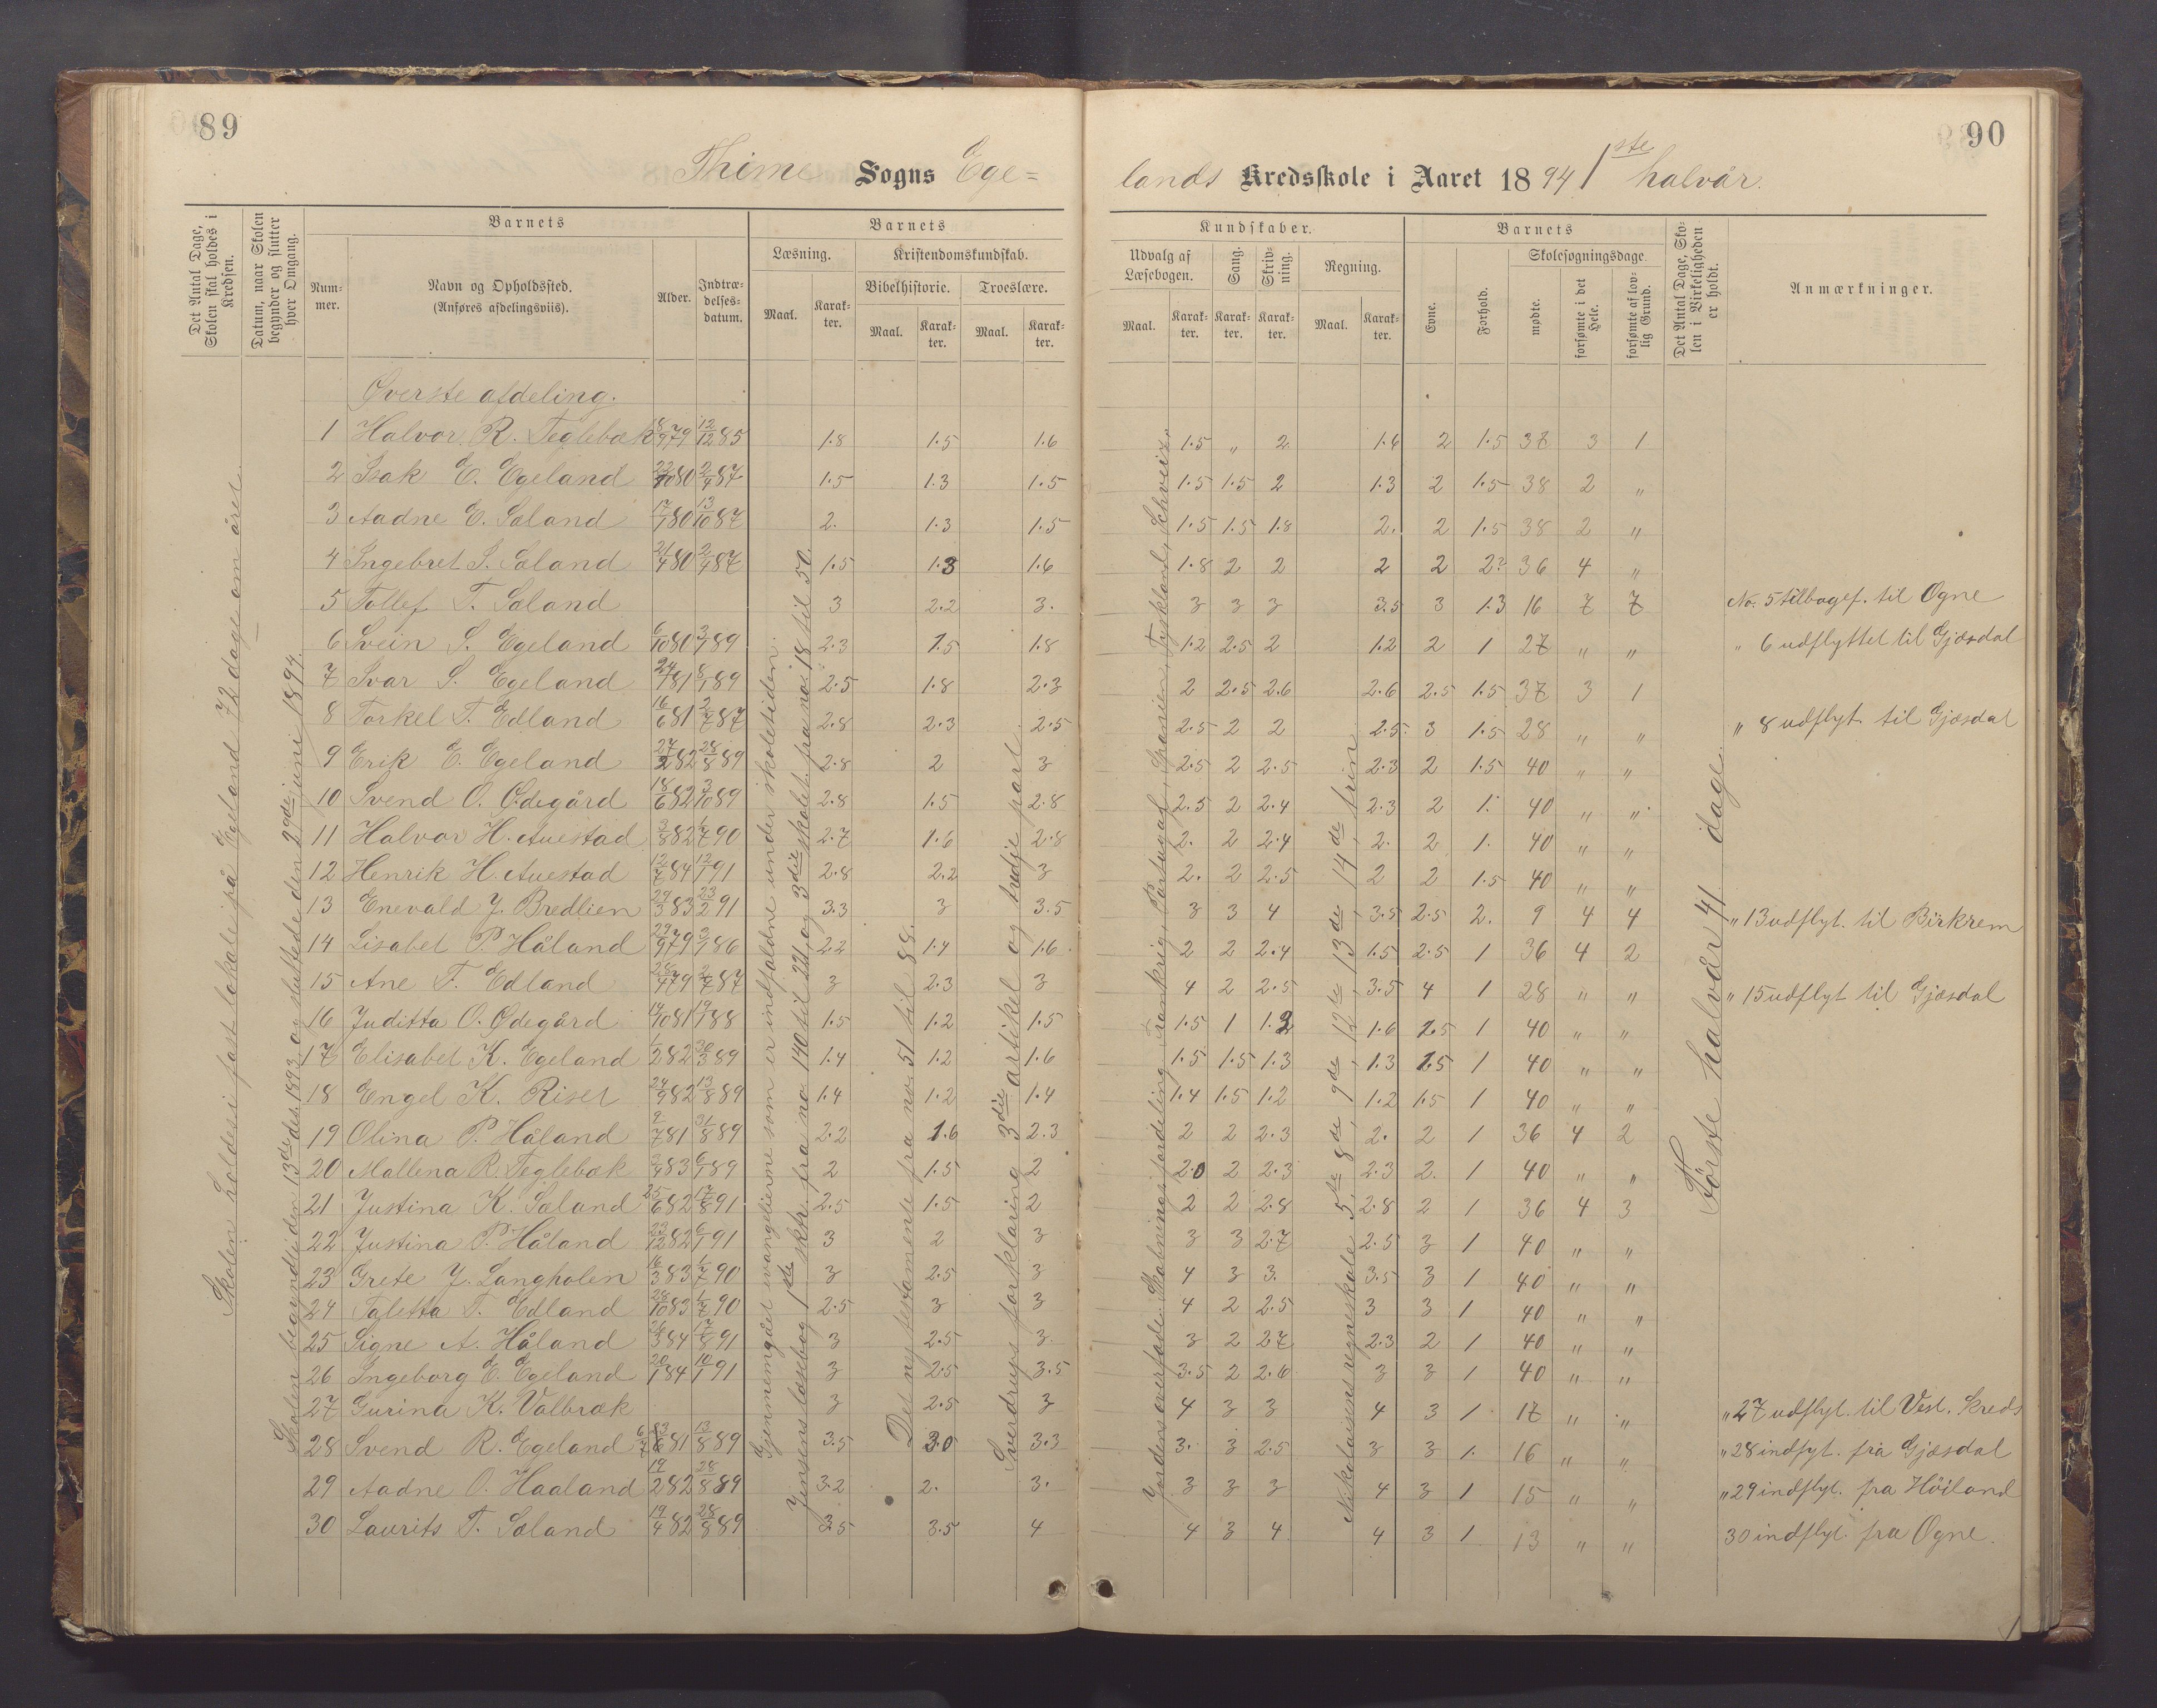 89
90
Thime Sogns Ege=
lands Kredsskole i Aaret 1894 1ste halvår.
Det Antal Dage, Skolen skal holdes i Kredsen.
Datum, naar Skolen begynder og slutter hver Omgang.
Barnets
Nummer.
Navn og Opholdssted.
(Anføres afdelingsviis).
Alder.
Indtrædelsesdatum.
Barnets
Læsning.
Kristendomskundskab.
Bibelhistorie.
Troeslære.
Maal. Karakter. Maal. Karakter. Maal. Karakter.
Kundskaber.
Udvalg af Læsebogen.
Sang.
Skrivning.
Regning.
Maal. Karakter. Karakter. Karakter. Maal. Karakter.
Barnets
Evne.
Forhold.
Skolesøgningsdage.
mødte.
forsømte i det Hele.
forsømte af lovlig Grund.
Det Antal Dage, Skolen i Virkeligheden er holdt.
Anmærkninger.
Skolen holdes i fast lokale på Egeland 72 dage om året.
Skolen begyndte den 13de dec. 1893 og sluttede den 29de juni 1894.
Gjennemgået evangelierne som er indfaldne under skoletiden.
Jensens læsebog 1ste skr. fra no 140 til 221, og 3die skolet. fra no. 18 til 50.
Det ny testamente fra no. 51 til 88.
Sverdrups forklaring 3die artikel og tredje part.
Jordens overflade. Skabningsfordeling. Frankrig, Portugal, Spanien, Tyskland, Schveiz.
Nikolaisens regneskole 5te 8de, 9de, 12te, 13de, 14de trin
Første halvår 41 dage.
Øverste afdeling.
1 Halvor R. Teglebæk 8/9 79 12/12 85 1.8 1.5 1.6 1.5 „ 2 1.6 2 1.5 37 3 1
2 Isak E. Egeland 22/10 80 2/4 87 1.5 1.3 1.5 1.5 1.5 2 1.3 2 1.5 38 2 „
3 Aadne E. Sæland 17/1 80 13/10 87 2. 1.3 1.5 1.5 1.5 1.8 2. 2 1.5 38 2 „
4 Ingebret S. Sæland 21/4 80 2/4 87 1.5 1.3 1.6 1.8 2 2 2 2 2? 36 4 „
5 Tollef T. Sæland 3 2.2 3. 3 3 3 3.5 3 1.3 16 7 7 No. 5 tilbagef. til Ogne
6 Svein S. Egeland 6/10 80 3/7 89 2.3 1.5 1.8 1.2 2.5 2 1.2 2 1 27 „ „ „ 6 udflyttet til Gjæsdal
7 Ivar S. Egeland 24/1 81 8/1 89 2.5 1.8 2.3 2 2.5 2.6 2.6 2.5 1.5 37 3 1
8 Torkel T. Edland 16/6 81 2/7 87 2.8 2.3 2.5 2.5 2 2 2.5 3 1.5 28 „ „ „ 8 udflyt. til Gjæsdal
9 Erik E. Egeland 27/2 82 28/8 89 2.8 2 3 2.5 2 2.5 2.3 2 1.5 40 „ „
10 Svend O. Ødegård 18/6 82 3/10 89 2.8 1.5 2.8 2.5 2 2.4 2.3 2 1. 40 „ „
11 Halvor H. Auestad 3/8 82 1/7 90 2.7 1.6 2.8 2. 2 2.4 2. 2 1. 40 „ „
12 Henrik H. Auestad 12/7 84 12/1 91 2.8 2.2 3 2. 2 2.5 2 2 1.5 40 „ „
13 Enevald J. Bredlien 24/3 83 23/2 91 3.3 3 3.5 3 3 4 3.5 2.5 2. 9 4 4 „ 13 udflyt. til Birkrem
14 Lisabet P. Håland 29/9 79 3/1 86 2.2 1.4 1.6 2 2 2.4 1.5 2.5 1 36 4 2
15 Ane T. Edland 28/4 79 2/7 87 3 2.3 3 4 2 2.5 3.5 4 1 28 „ „ „ 15 udflyt til Gjæsdal
16 Juditta O. Ødegård 14/10 81 19/1 88 1.5 1.2 1.5 1.5 1 1.2 1.6 1.5 1 40 „ „
17 Elisabet K. Egeland 1/2 82 30/3 89 1.4 1.2 1.6 1.5 1.5 1.3 1.3 1.5 1 40 „ „
18 Engel K. Riset 24/9 82 13/8 89 1.4 1.2 1.4 1.4 1.5 1.2 1.2 1.5 1 40 „ „
19 Olina P. Håland 2/7 81 31/8 89 2.2 1.6 2.3 2 2 2.3 2. 2 1 36 4 2
20 Mallena R. Teglebæk 2/4 83 6/1 89 2 1.5 2 2.0 2 2.3 2.3 2. 1 40 „ „
21 Justina K. Sæland 25/6 82 17/8 91 2.5 1.5 2 2 2 2.8 2.8 2 1 36 4 3
22 Justina P. Håland 23/12 82 6/1 91 3 2 3 3 3 2.7 2.5 3 1 40 „ „
23 Grete J. Langholen 16/3 83 1/7 90 3 2.5 3 4 3 3. 3.5 3 1 40 „ „
24 Taletta T. Edland 28/10 83 1/7 90 2.5 3 3 4 2 2.5 3 3 1 40 „ „
25 Signe A. Håland 26/3 84 17/8 91 3 2.5 3. 3 2 2.7 2.3 2 1 40 „ „
26 Ingeborg E. Egeland 20/1 84 10/1 91 3 2.5 3.5 3.5 2 2.6 3 3 1 40 „ „
27 Gurina K. Valbræk 3 2.5 3 4 3 3 4 3 1 17 „ „ „ 27 udflyt. til Vest. Kreds
28 Svend R. Egeland 81 13/8 89 3.5 3.0 3.3 3. 3 2.5 3 3 1. 16 „ „ „ 28 indfyt. fra Gjæsdal
29 Aadne O. Haaland 19/2 82 28/8 89 3.2 2. 3. 3 3 3 4 3 1 15 „ „ „ 29 indflyt. fra Höiland
30 Laurits T. Sæland 19/4 82 28/8 89 3.5 3.5 4 4 3 4 4 3 1 13 „ „ 30 indflyt. fra Ogne.